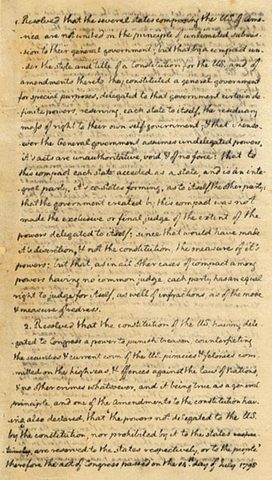 1. Resolved that the several states composing the US. of Ame-
rica are not united on the principle of unlimited submis-
sion to their general government; but that by a compact un-
der the style and title of a constitution for the US. and of
amendments thereto, they constituted a general government
for special purposes, delegated to that government certain de-
finite powers, reserving, each state to itself, the residuary
mass of right to their own self-government; & that whenso-
ever the General government assumes undelegated powers,
it's acts are unauthoritative, void & of no force: that to
this compact each state acceded as a state, and is an inte-
gral party, it's co-states forming, as to itself, the other party:
that the government created by this compact was not
made the exclusive or final judge of the extent of the
powers delegated to itself; since that would have made
it's discretion, & not the constitution, the measure of it's
powers: but that, as in all other cases of compact among
powers having no common judge, each party has an equal
right to judge for itself, as well of infractions, as of the mode
& measure of redress.
2. Resolved that the constitution of the US. having dele-
gated to Congress a power to punish treason, counterfieting
the securities & current coin of the US. piracies & felonies com-
mitted on the high seas, & offences against the law of nations,
& no other crimes whatever, and it being true as a general
principle, and one of the Amendments to the constitution hav-
ing also declared, that 'the powers not delegated to the US.
by the constitution, nor prohibited by it to the states
are reserved to the states respectively, or to the people'
therefore the act of Congress passed on the 14th. day of July 1798